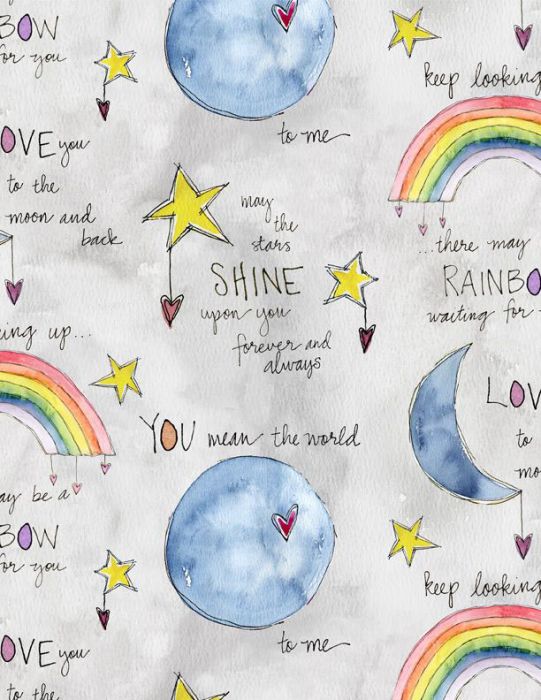 BOW
for you
LOVE you
to the
moon and
back
to me
keep looking
may
the
stars
SHINE
upon you
forever and
always
...there may
RAINBO
waiting for
up...
YOU mean the world
to me
LOV
to
mo
be a
BOW
for you
LOVE you
to the
keep looking